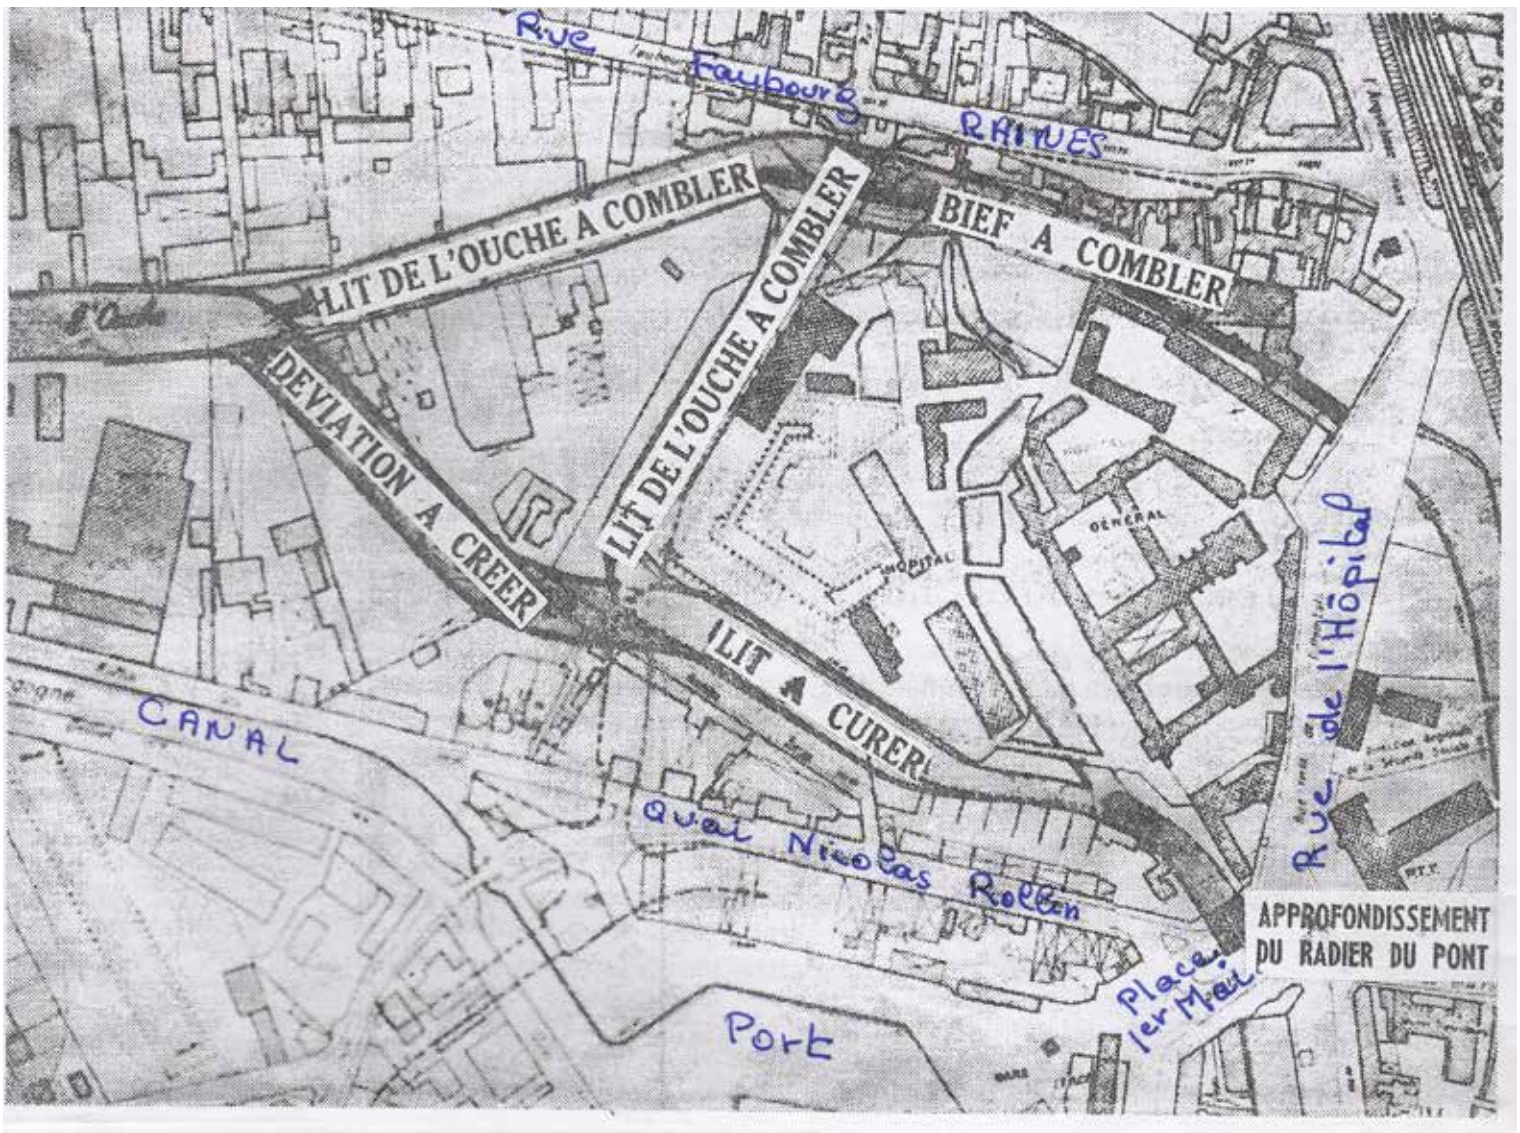 Rue Faubourg RAINES
LIT DE L'OUCHE A COMBLER
LIT DE L'OUCHE A COMBLER
BIEF A COMBLER
l'Ouche
DEVIATION A CREER
GÉNÉRAL
HÔPITAL
Rue de l'Hôpital
LIT A CURER
CANAL
Quai Nicolas Rollin
P.T.T.
APPROFONDISSEMENT
DU RADIER DU PONT
Place
1er Mai
Port
GARE